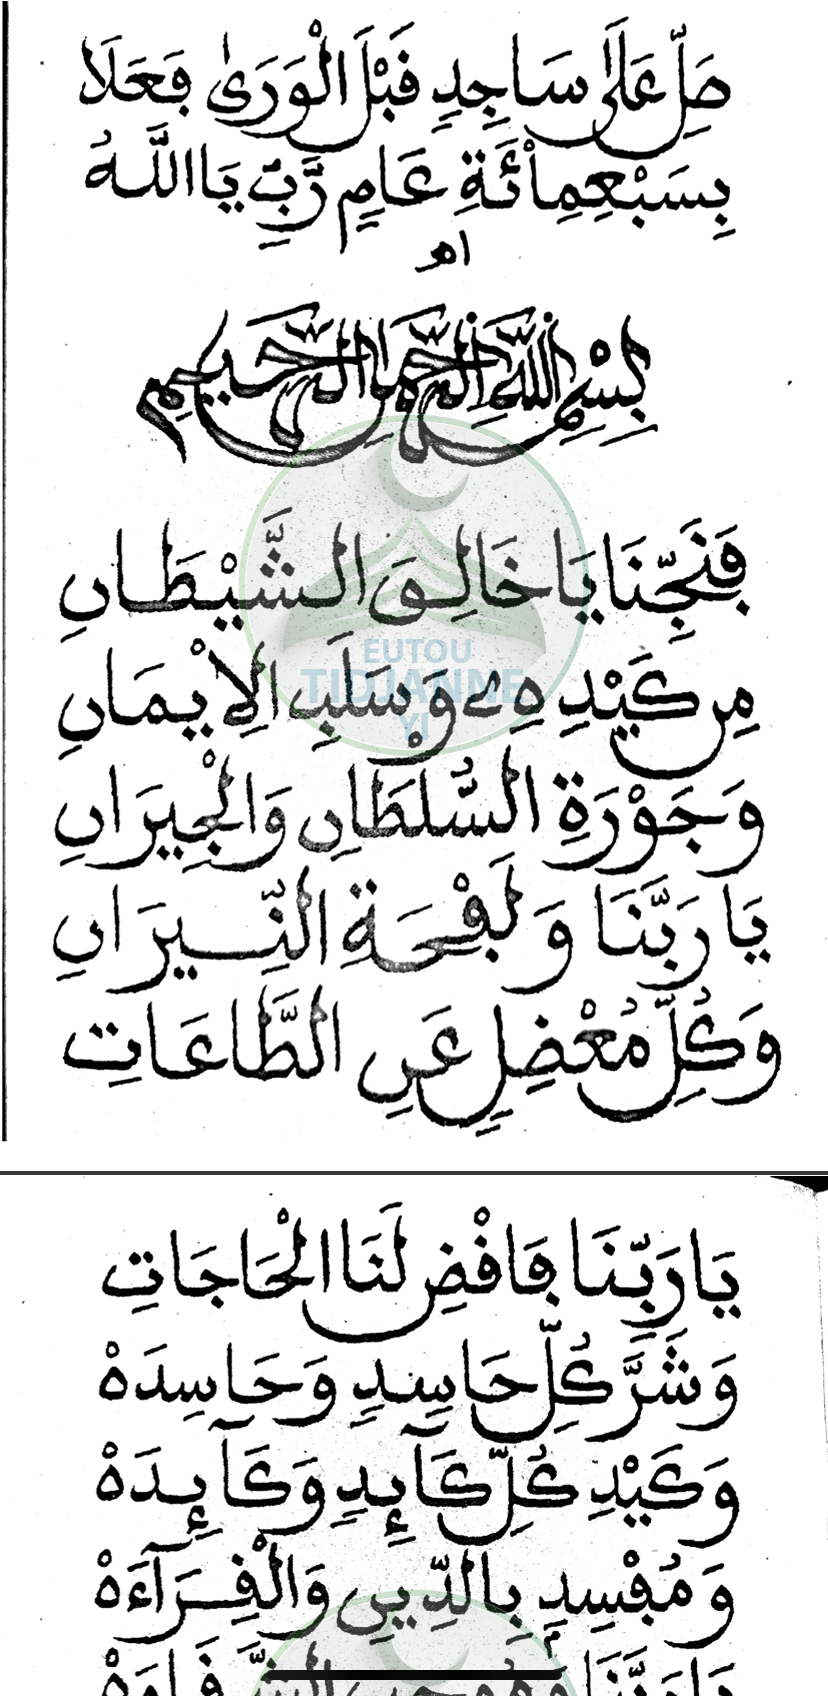 صَلِّ عَلَىٰ سَاجِدٍ قَبْلَ الْوَرَىٰ فَعَلَا
بِسَبْعِمِاْئَةِ عَامٍ رَّبِّ يَا اللَّهُ
اهـ
بِسْمِ اللَّهِ الرَّحْمَٰنِ الرَّحِيمِ
فَنَجِّنَا يَا خَالِقَ الشَّيْطَانِ
مِن كَيْدِهِۦ وَسَلْبِ الِايْمَانِ
وَجَوْرَةِ السُّلْطَانِ وَالْجِيرَانِ
يَا رَبَّنَا وَلَفْحَةِ النِّيرَانِ
وَكُلِّ مُعْضِلٍ عَنِ الطَّاعَاتِ
EUTOU
TIDJANNE
YI
يَا رَبَّنَا فَاقْضِ لَنَا الْحَاجَاتِ
وَشَرِّ كُلِّ حَاسِدٍ وَحَاسِدَهْ
وَكَيْدِ كُلِّ كَآئِدٍ وَكَآئِدَهْ
وَمُفْسِدٍ بِالدِّينِ وَالْقِرَآءَهْ